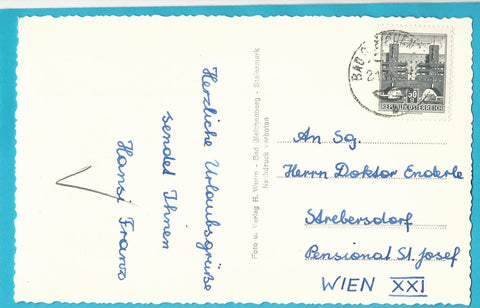 Herzliche Urlaubsgrüße
sendet Ihnen
Hansi Franz
Foto u. Verlag R. Wurm - Bad Gleichenberg - Steiermark
Nachdruck verboten
BAD
50
REPUBLIK ÖSTERREICH
An Sg.
Herrn Doktor Enderle
Strebersdorf
Pensionat St. Josef
WIEN XXI